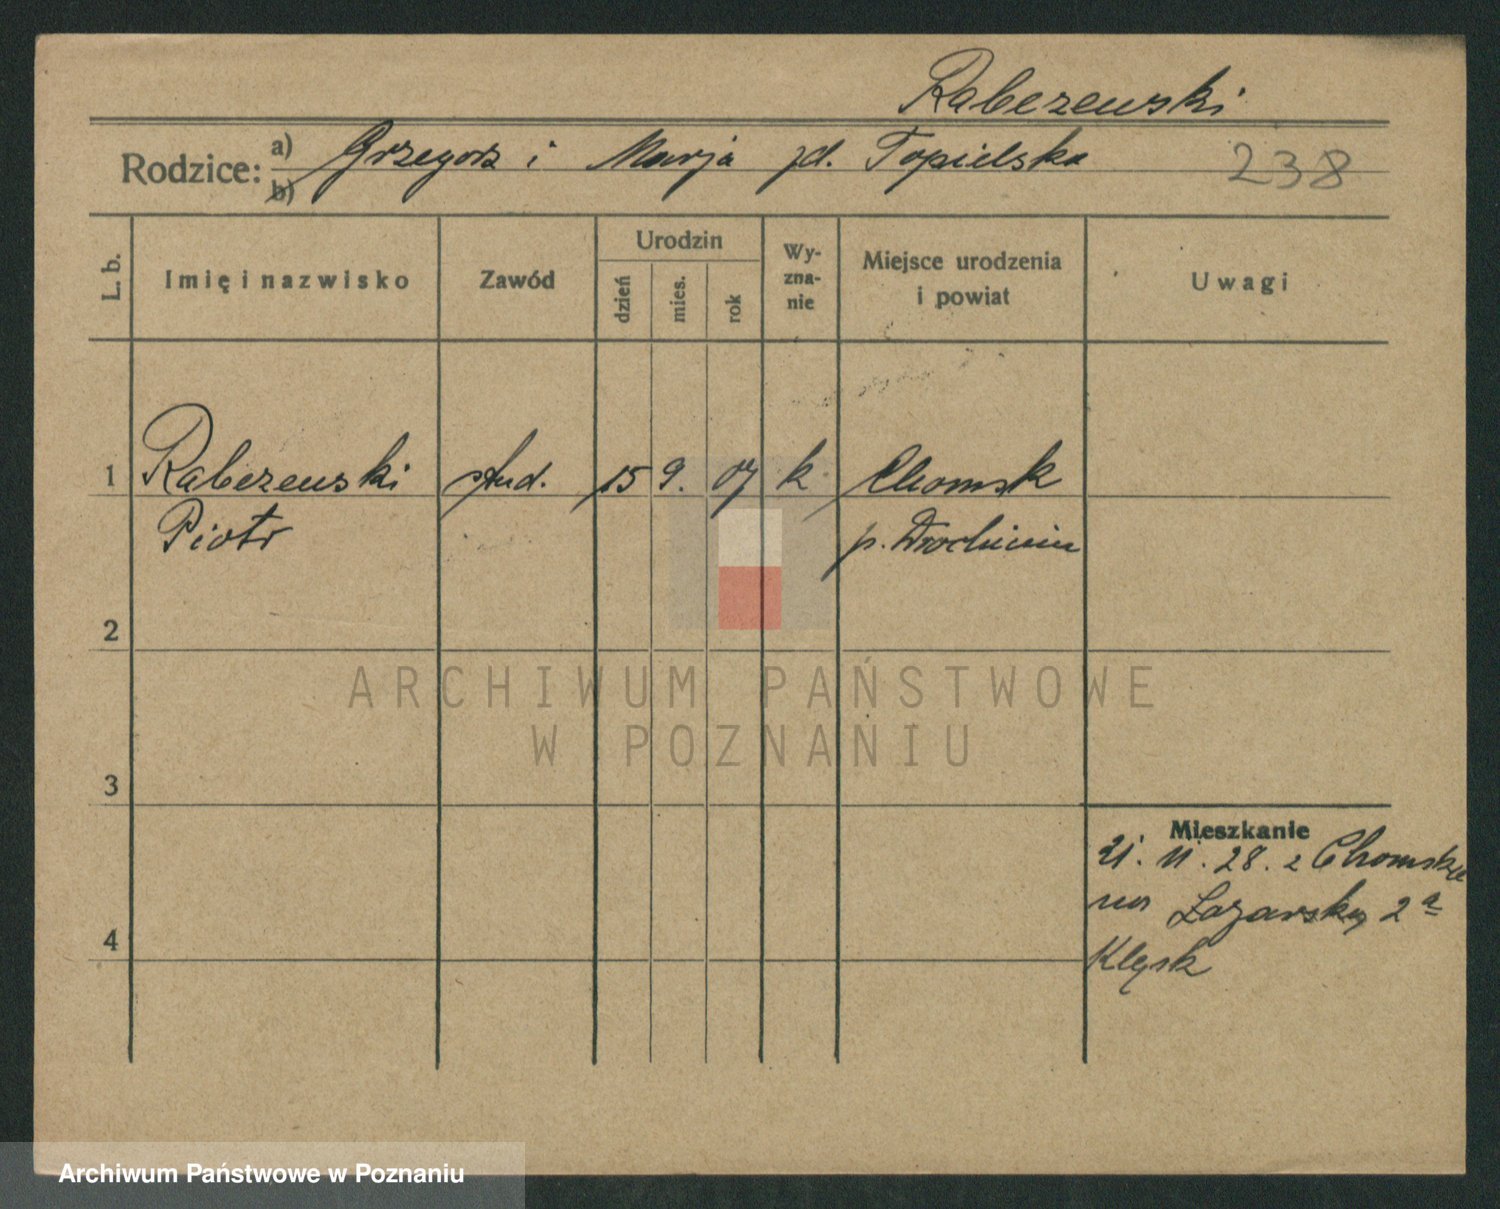 Rabczewski
Rodzice: a) Grzegorz i Marja zd. Topielska
b)
238
L. b.
Imię i nazwisko
Zawód
Urodzin
dzień
mies.
rok
Wy-
zna-
nie
Miejsce urodzenia
i powiat
Uwagi
1 Rabczewski stud. 15 9. 07 k. Chomsk
Piotr p. Drohiczin
2
3
4
Mieszkanie
21. 11. 28. z Chomska
na Łazarską 2a
Klysk
ARCHIWUM PAŃSTWOWE
W POZNANIU
Archiwum Państwowe w Poznaniu